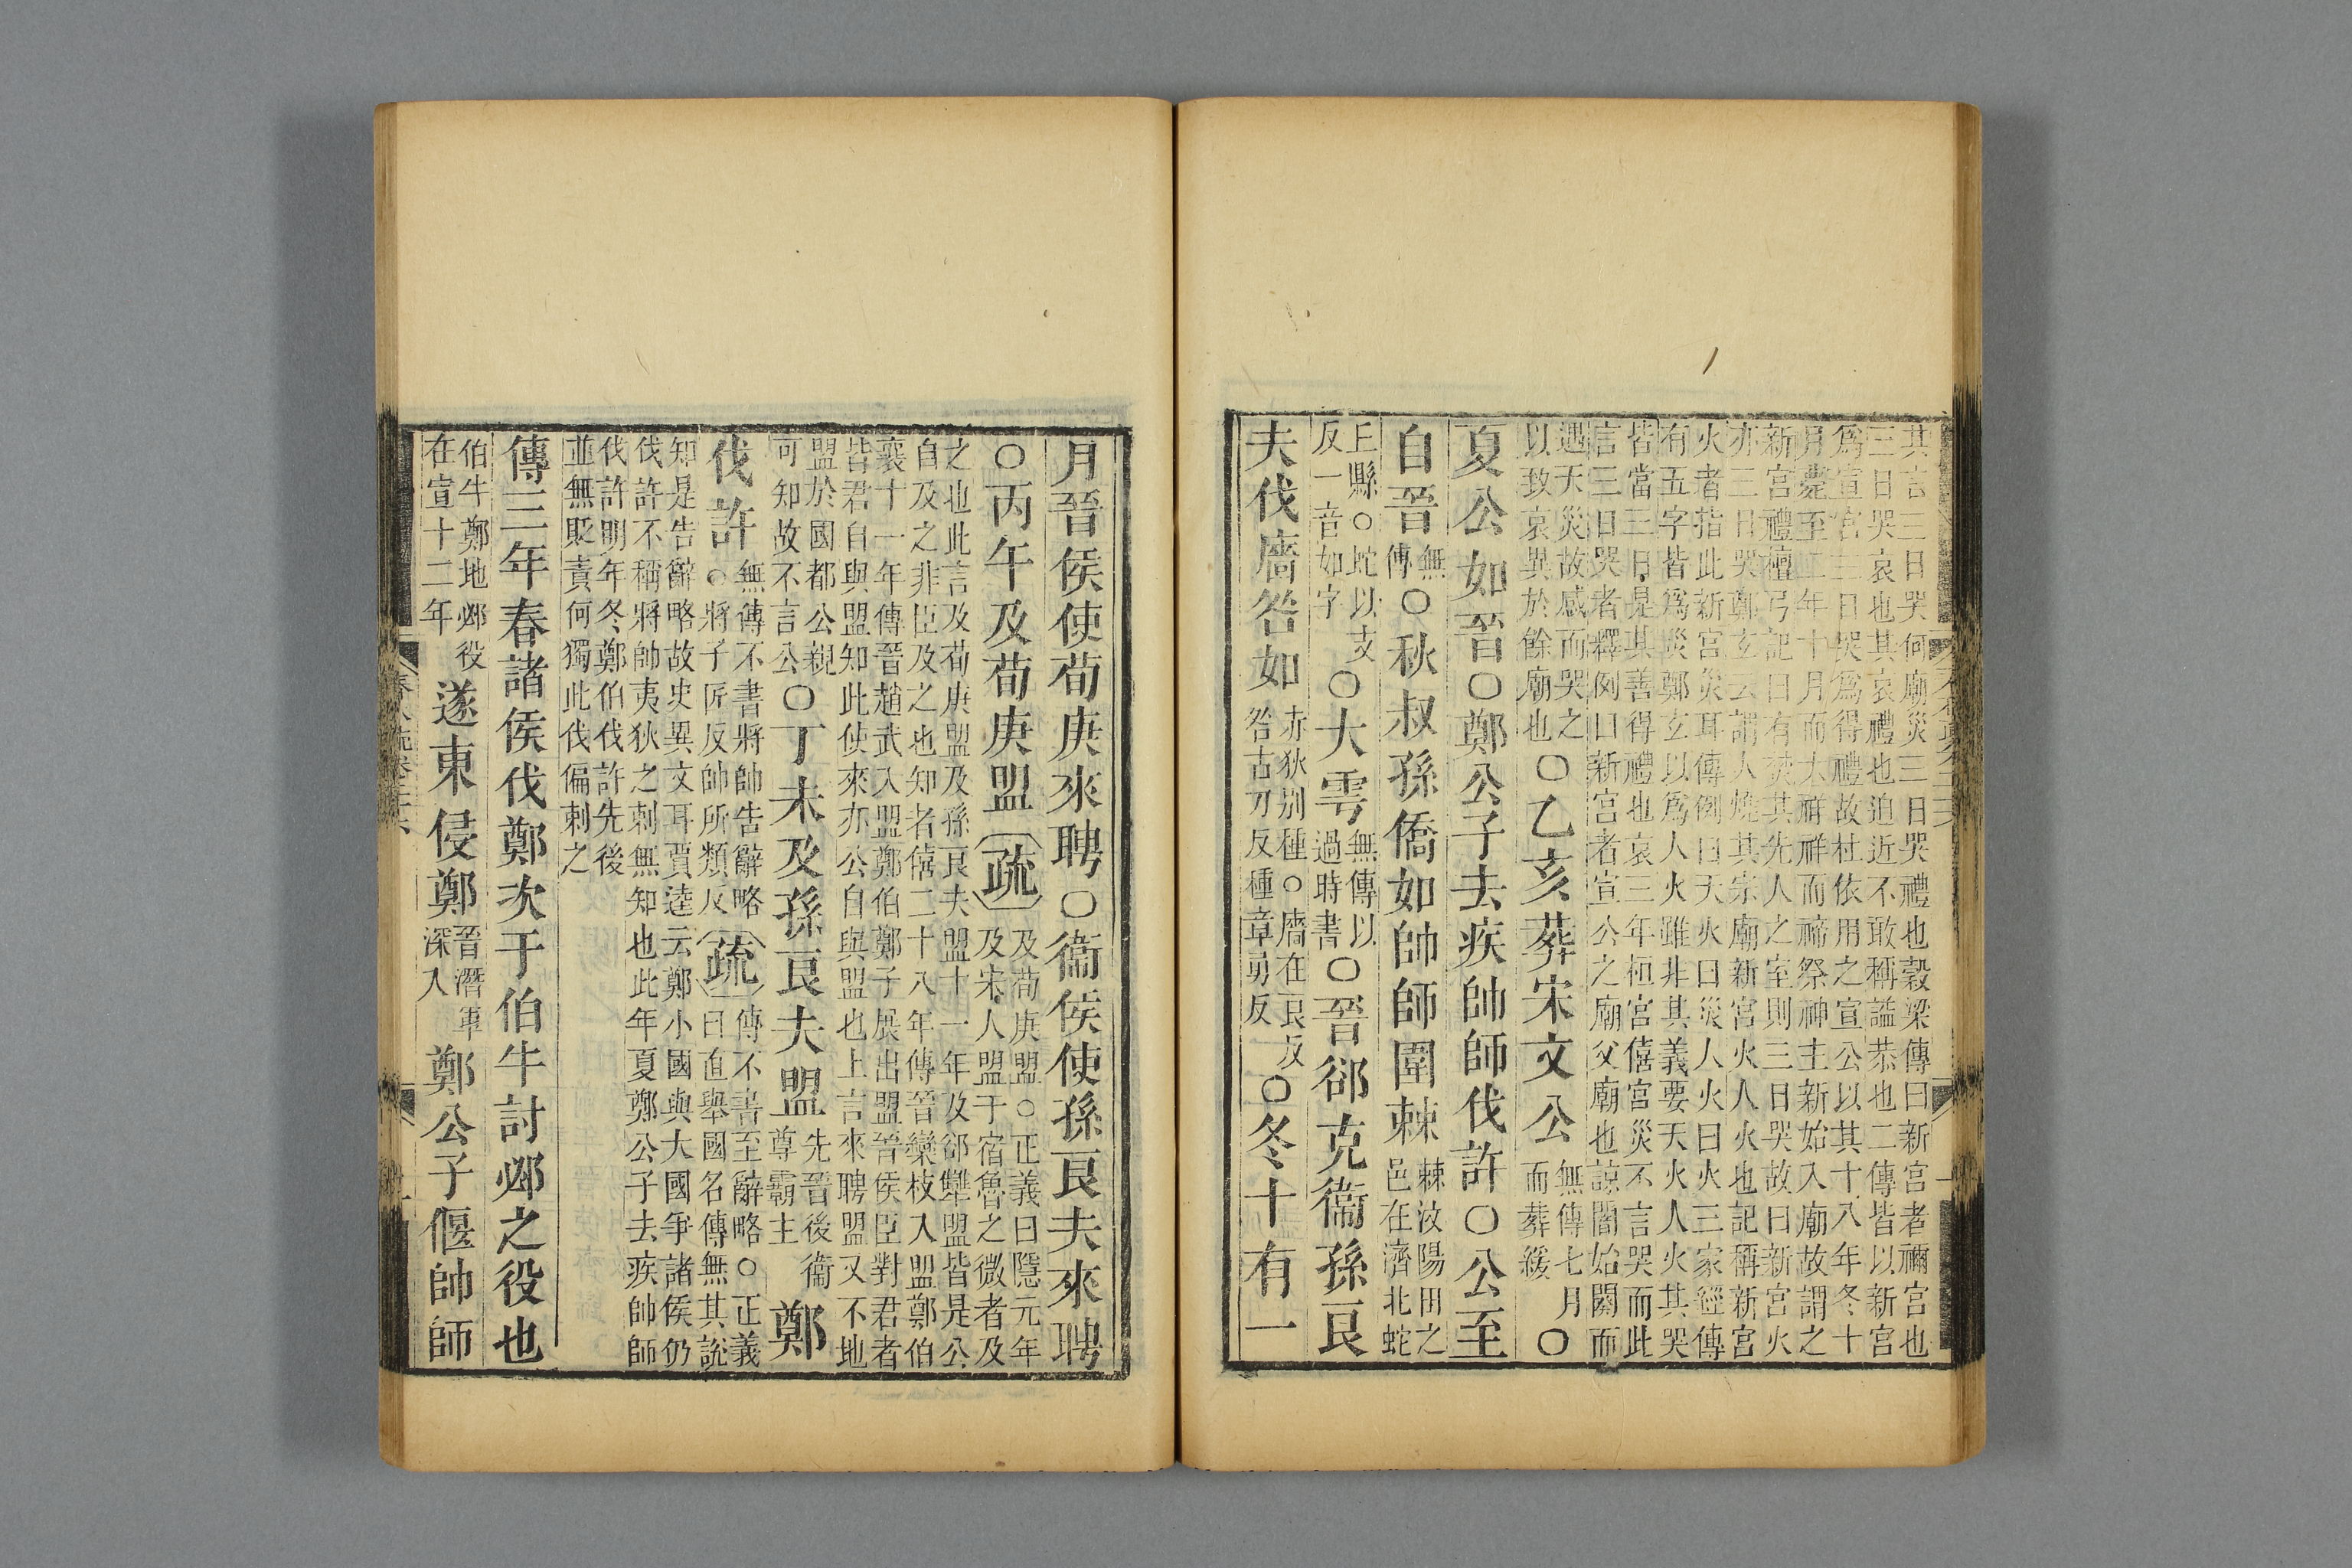 其言三日哭何廟災三日哭禮也穀梁傳曰新宮者禰宮也
三日哭哀也其哀禮也迫近不敢稱謚恭也二傳皆以新宮
爲宣宮三日哭爲得禮故杜依用之宣公以其十八年冬十
月薨至二年十月而大祥祥而禘祭神主新始入廟故謂之
新宮禮檀弓記曰有焚其先人之室則三日哭故曰新宮火
亦三日哭鄭玄云謂人燒其宗廟新宮火人火也記稱新宮
火者指此新宮災耳傳例曰天火曰災人火曰火三家經傳
有五字皆爲災鄭玄以爲人火雖非其義要天火人火其哭
皆當三日是其善得禮也哀三年桓宮僖宮災不言哭而此
言三日哭者釋例曰新宮者宣公之廟父廟也諒闇始闋而
遇天災故感而哭之
以致哀異於餘廟也
○乙亥葬宋文公
無傳七月
而葬緩
○
夏公如晉○鄭公子去疾帥師伐許○公至
自晉
無
傳
○秋叔孫僑如帥師圍棘
棘汶陽田之
邑在濟北蛇
丘縣○蛇以支
反一音如字
○大雩
無傳以
過時書
○晉郤克衞孫良
夫伐廧咎如
赤狄别種○廧在良反
咎古刀反種章勇反
○冬十有一
月晉侯使荀庚來聘○衞侯使孫良夫來聘
○丙午及荀庚盟
疏
及荀庚盟○正義曰隱元年
及宋人盟于宿魯之微者及
之也此言及荀庚盟及孫良夫盟十一年及郤犫盟皆是公
自及之非臣及之也知者僖二十八年傳晉欒枝入盟鄭伯
襄十一年傳晉趙武入盟鄭伯鄭子展出盟晉侯臣對君者
皆君自與盟知此使來亦公自與盟也上言來聘盟又不地
盟於國都公親
可知故不言公
○丁未及孫良夫盟
先晉後衞
尊霸主
鄭
伐許
無傳不書將帥告辭略
○將子匠反帥所類反
疏
傳不書至辭略○正義
曰直舉國名傳無其說
知是告辭略故史異文耳賈逵云鄭小國與大國爭諸侯仍
伐許不稱將帥夷狄之刺無知也此年夏鄭公子去疾帥師
伐許明年冬鄭伯伐許先後
並無貶責何獨此伐偏刺之
傳三年春諸侯伐鄭次于伯牛討邲之役也
伯牛鄭地邲役
在宣十二年
遂東侵鄭
晉潛軍
深入
鄭公子偃帥師